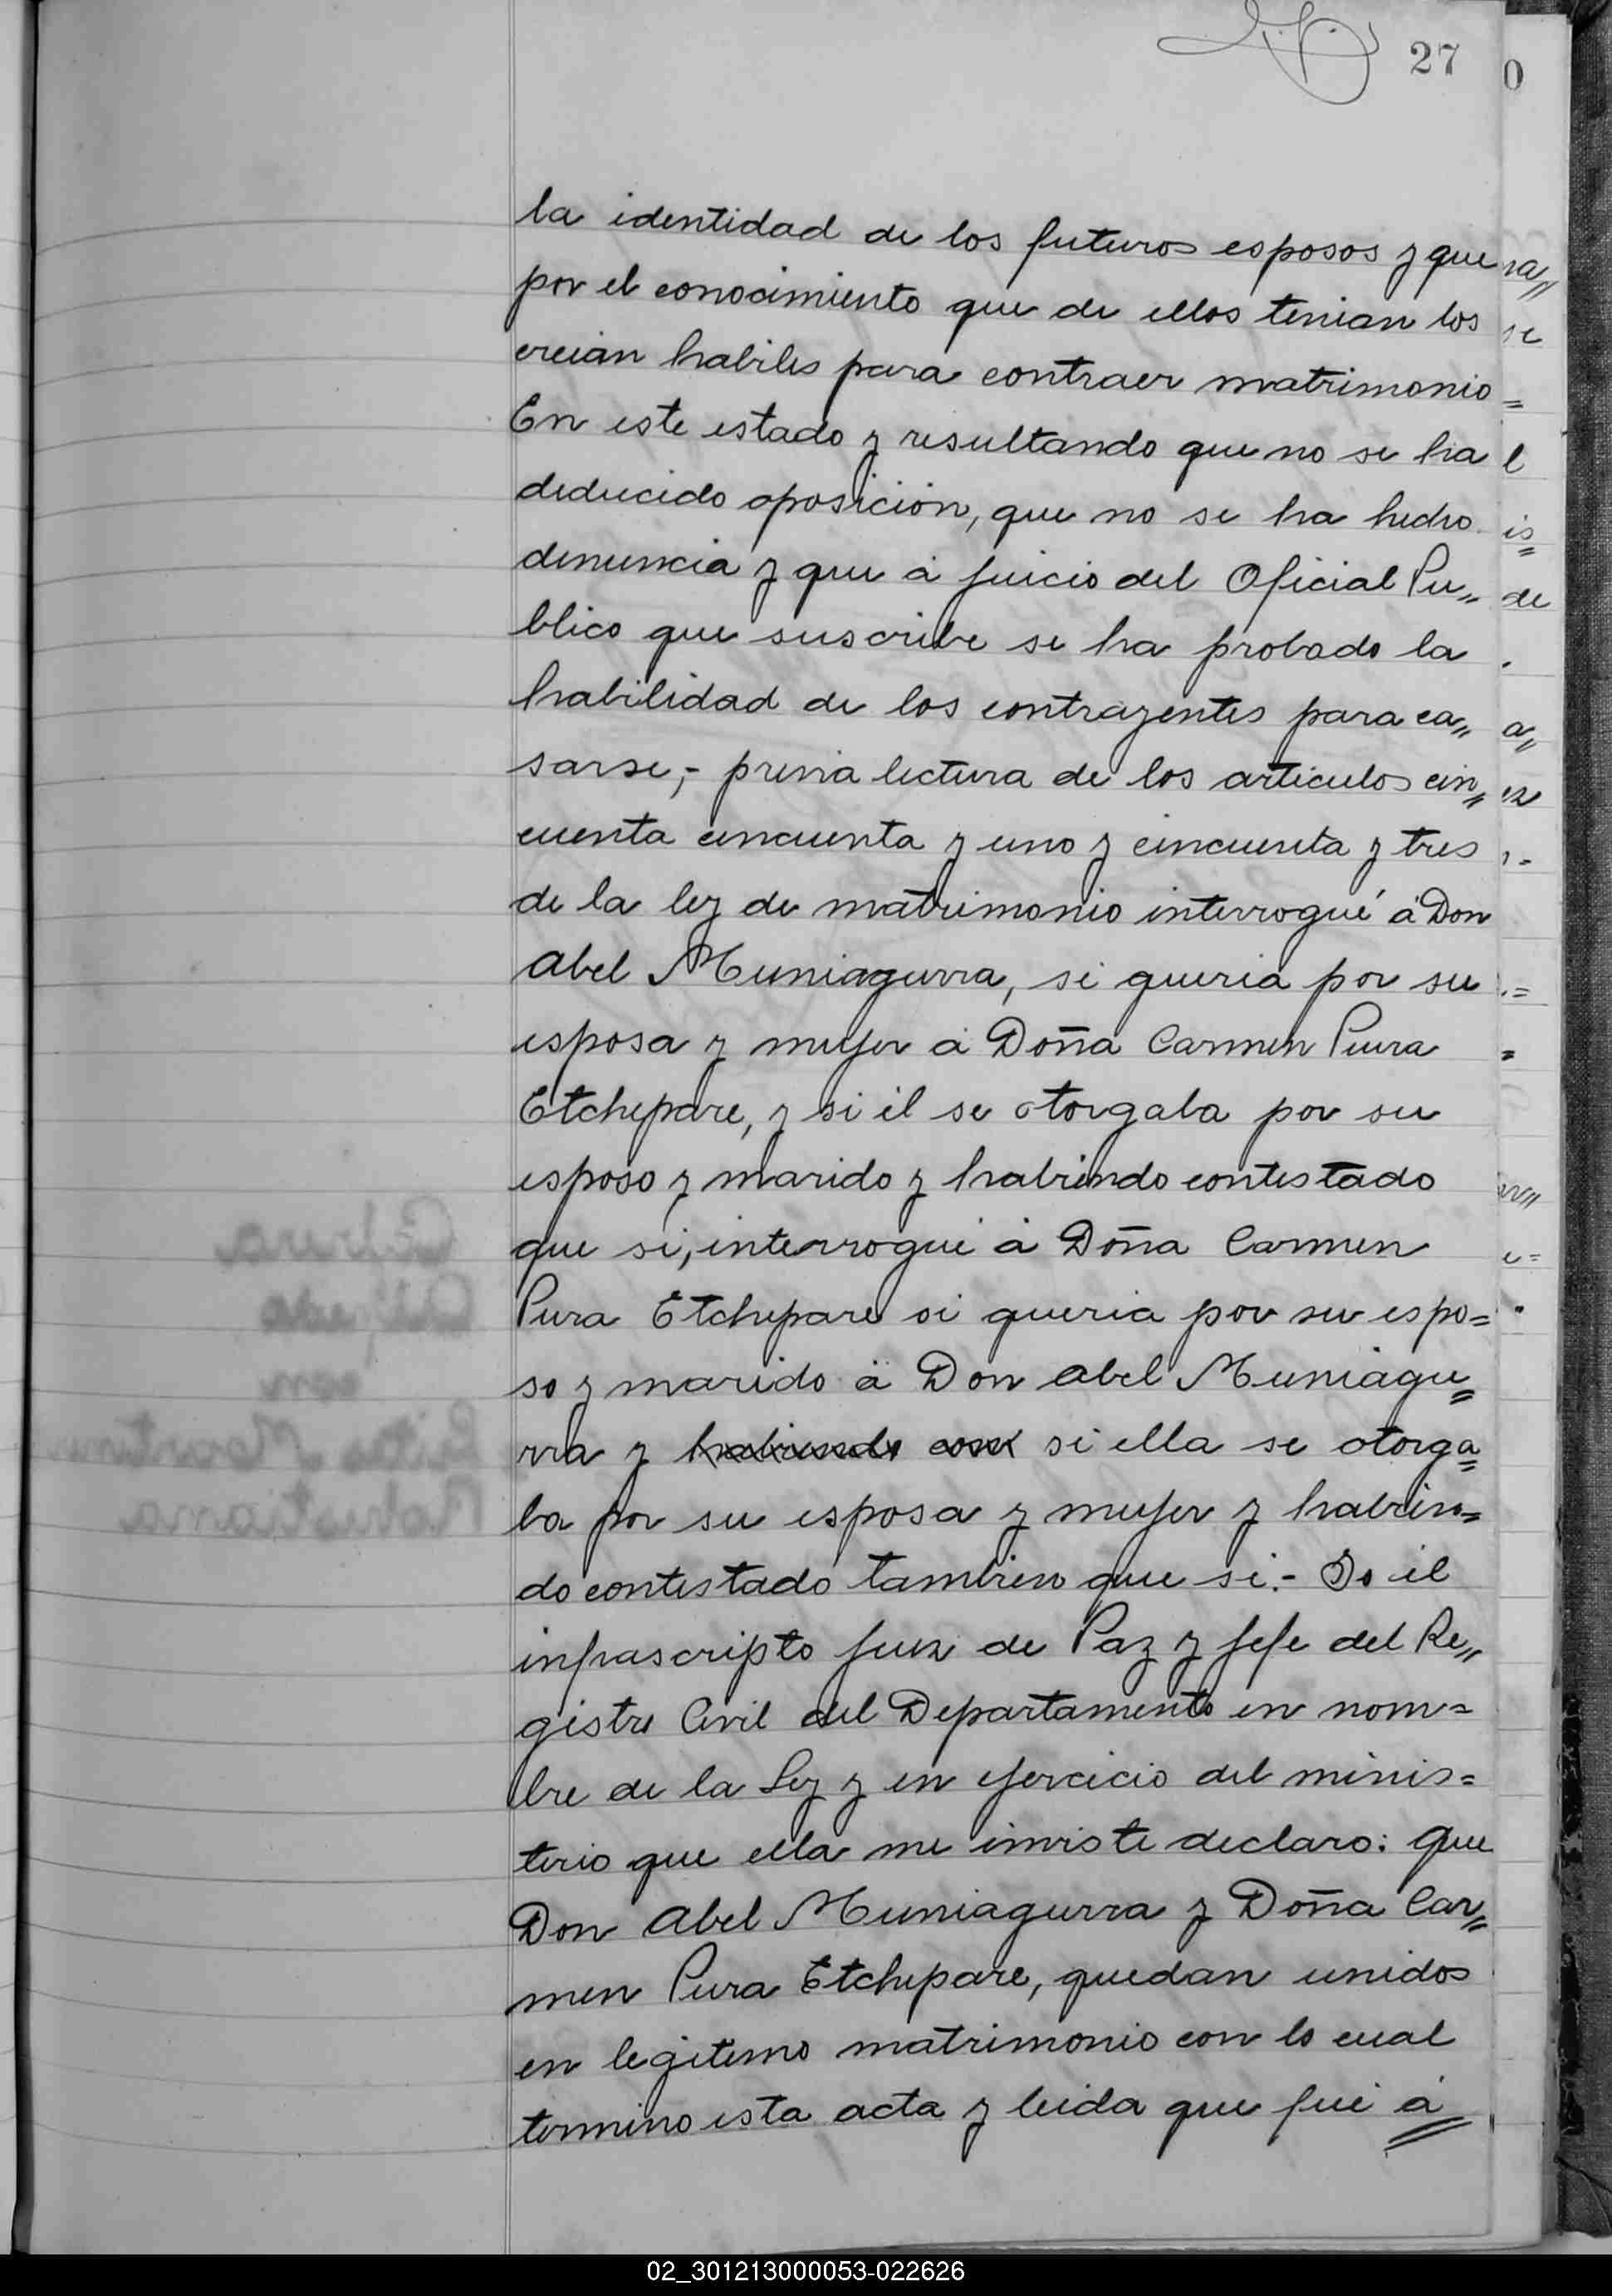 27
la identidad de los futuros esposos y que
por el conocimiento que de ellos tenian los
creian habiles para contraer matrimonio
En este estado y resultando que no se ha
deducido oposición, que no se ha hecho
denuncia y que á juicio del Oficial Pu„
blico que suscribe se ha probado la
habilidad de los contrayentes para ca„
sarse,- previa lectura de los articulos cin„
cuenta cincuenta y uno y cincuenta y tres
de la ley de matrimonio interrogué á Don
Abel Muniagurra, si queria por su
esposa y mujer á Doña Carmen Pura
Etchepare, y si él se otorgaba por su
esposo y marido y habiendo contestado
que si, interrogué á Doña Carmen
Pura Etchepare si queria por su espo=
so y marido á Don Abel Muniagu=
rra y habiendo con si ella se otorga=
ba por su esposa y mujer y habien=
do contestado tambien que si.- Yo el
infrascripto Juez de Paz y Jefe del Re„
gistro Civil del Departamento en nom=
bre de la Ley y en ejercicio del minis=
terio que ella me inviste declaro: que
Don Abel Muniagurra y Doña Car„
men Pura Etchepare, quedan unidos
en legitimo matrimonio con lo cual
termino esta acta y leida que fué á
02_301213000053-022626